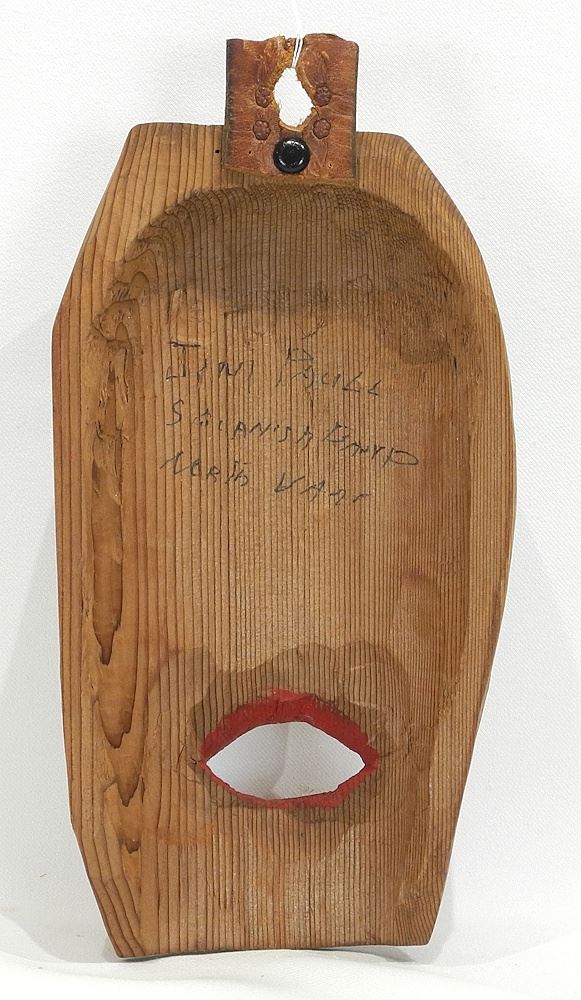 JIM PAULL
SQUAMISH BAND
NORTH VAN